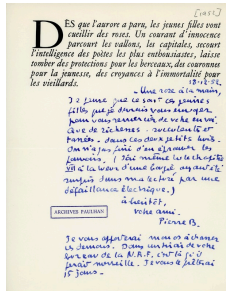 [1952]
DÈS que l'aurore a paru, les jeunes filles vont
cueillir des roses. Un courant d'innocence
parcourt les vallons, les capitales, secourt
l'intelligence des poètes les plus enthousiastes, laisse
tomber des protections pour les berceaux, des couronnes
pour la jeunesse, des croyances à l'immortalité pour
les vieillards.
18-12-52.
– Une rose à la main,
j'espère que ce sont ces jeunes
filles que je devrais vous envoyer
pour vous remercier de votre envoi.
Que de richesses - succulentes et
– dans ces deux petits
On n'a pas fini d'en épuiser les
. J'ai même lu le chapitre
à la lueur d'une bougie ayant été
surpris dans ma lecture par une
défaillance électrique.)
à bientôt,
votre ami.
Pierre B.
ARCHIVES PAULHAN
Je vous apporterai mon
demain. Dans un tiroir de votre
bureau de la N.R.F. c'est là qu'il
ferait merveille. Je vous le prêterai
15 jours -